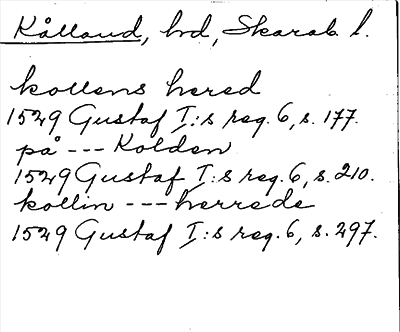 Kålland, hd, Skarab. l.
kollens hered
1529 Gustaf I:s reg. 6, s. 177.
på --- Kolden
1529 Gustaf I:s reg. 6, s. 210.
kollin --- herrede
1529 Gustaf I:s reg. 6, s. 297.